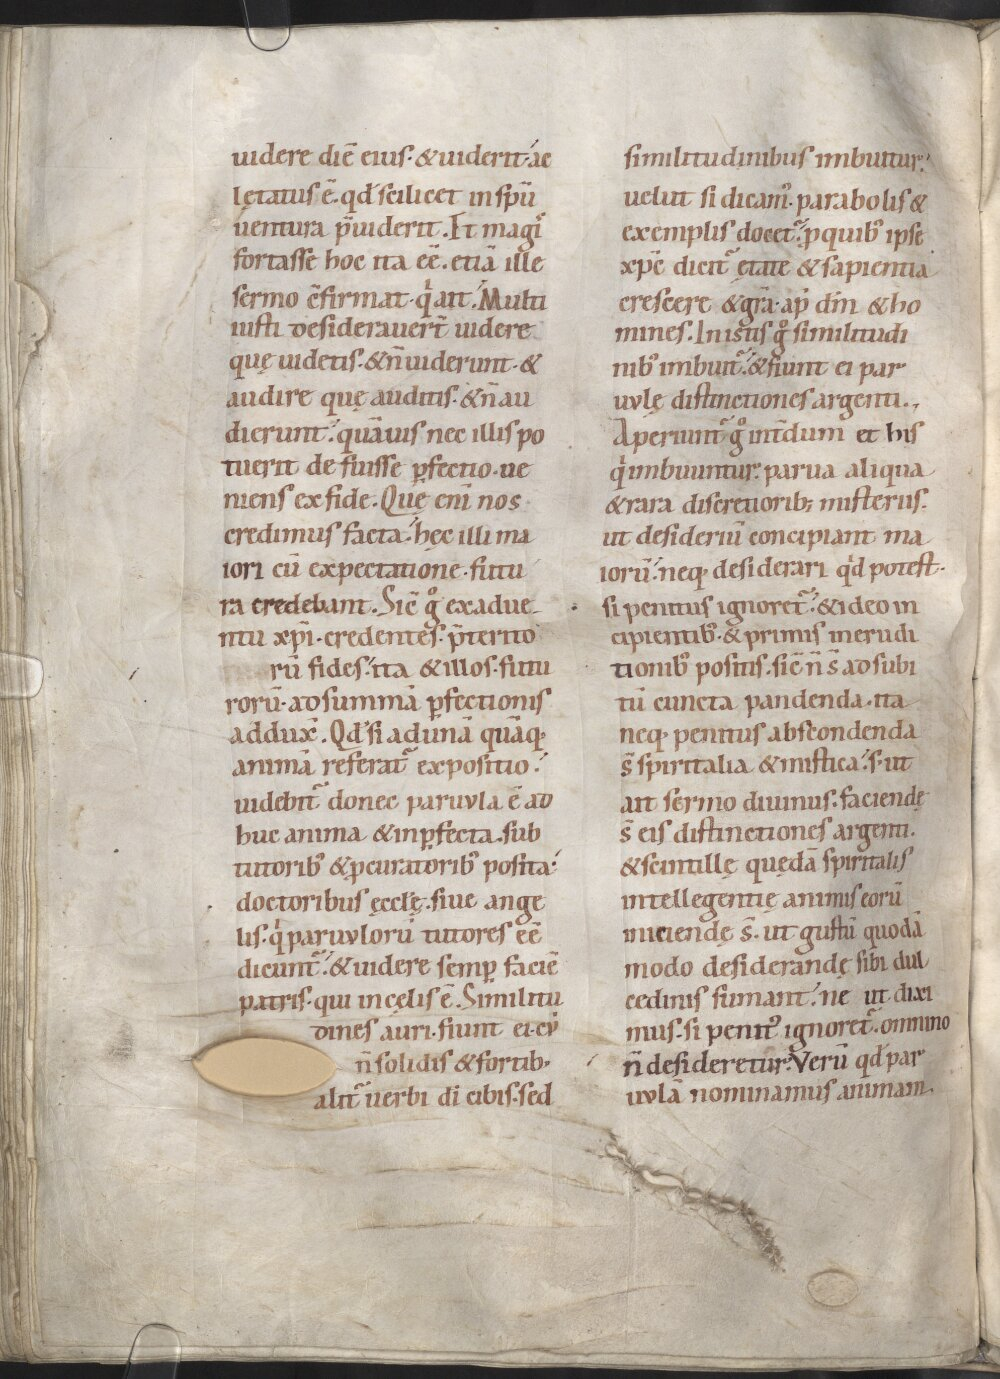 uidere diē eius· &uiderit·́ ac
lętatus ē. qđ scilicet in spū
uentura p̄uiderit. Et magi᷒
fortasse hoc ita eē. etiā ille
sermo c̄firmat· qͥ ait·́ Multi
iusti desiderauer̄t uidere
quę uidetis· &n̄ uiderunt· &
audire quę auditis· &n̄ au
dierunt·́ quāuis nec illis po
tuerit de fuisse ꝑfectio· ue
niens ex fide. Quę eni nos
credimus facta·́ hęc illi ma
iori cū expectatione· futu
ra credebant. Sic̄ gͦ ex adue
ntu xpi· credentes· p̄terito
rū fides·́ ita & illos· futu
rorū· ad summā ꝑfectionis
addux̄. Qđ si ad unā quāq;
animā referat᷒ expositio·́
uidebit᷒ donec paruula ē ad
huc anima & inꝑfecta. sub
tutorib᷒ & ꝓcuratorib᷒ posita·́
doctoribus ęcclę̄. siue ange
lis· qͥ paruulorū tutores eē
dicunt᷒·́ & uidere semꝑ faciē
patris· qui in cęlis ē. Similitu
dines auri· fiunt ei· cū
n̄ solidis & fortib;
alit᷒ uerbi di cibis· sed
similitudinibus imbuitur·́
uelut si dicam᷒· parabolis &
exemplis docet᷒·́ ꝑ quib᷒ ipse
xpc̄ dicit᷒ ętate & sapientia
crescere & gr̄a· ap̄ dm̄ & ho
mines. In istis gͦ similitudi
nib᷒ imbuit᷒·́ & fiunt ei par
uulę distinctiones argenti.,
Aperiunt᷒ gͦ int̄dum et his
qͥ imbuuntur·́ parua aliqua
& rara discretiorib; misteriis·
ut desideriū concipiant ma
iorū·́ neq; desiderari qͥd potest·
si penitus ignoret᷒·́ & ideo in
cipientib᷒· & primis inerudi
tionib᷒ positis· sic̄ n̄ s̄ ad subi
tū cuncta pandenda· ita
neq; penitus abscondenda
s̄ spiritalia & mistica·́ s· ut
ait sermo diuinus· faciendę
s̄ eis distinctiones argenti·
& scintillę quędā spiritalis
intellegentię animis eorū
iniciendę s̄· ut gustū quodā
modo desiderandę sibi dul
cedinis sumant·́ ne ut dixi
mus· si penit᷒ ignoret᷒· omnino
n̄ desideretur·́ Verū qđ par
uulā nominamus animam·